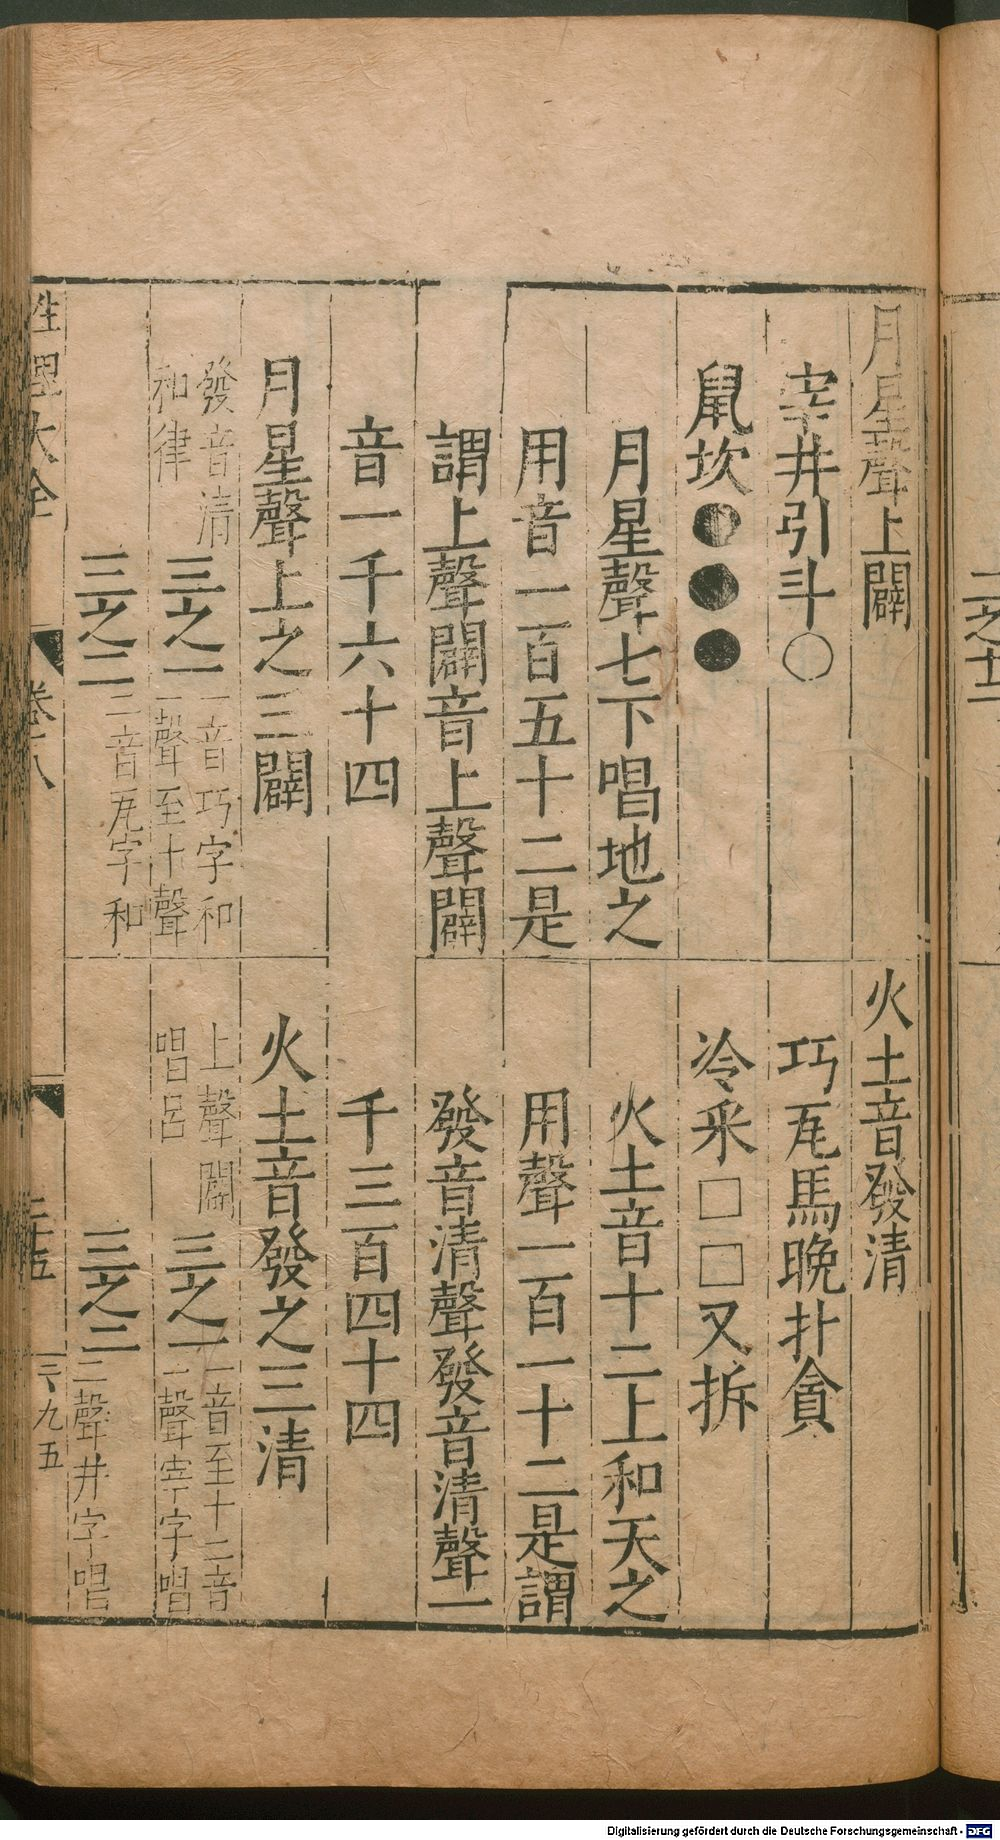 月星聲上闢
火土音發清
宰井引斗○
巧瓦馬晚扑貪
鼠坎●●●
冷釆□□叉拆
月星聲七下唱地之
火土音十二上和天之
用音一百五十二是
用聲一百一十二是謂
謂上聲闢音上聲闢
發音清聲發音清聲一
音一千六十四
千三百四十四
月星聲上之三闢
火土音發之三清
發音清
和律
三之一
一音巧字和
一聲至十聲
上聲闢
唱呂
三之一
一音至十二音
一聲宰字唱
三之二
二音瓦字和
三之二
二聲井字唱
性理大全
卷之八
三十五
三、九五
二之十二
Digitalisierung gefördert durch die Deutsche Forschungsgemeinschaft - DFG